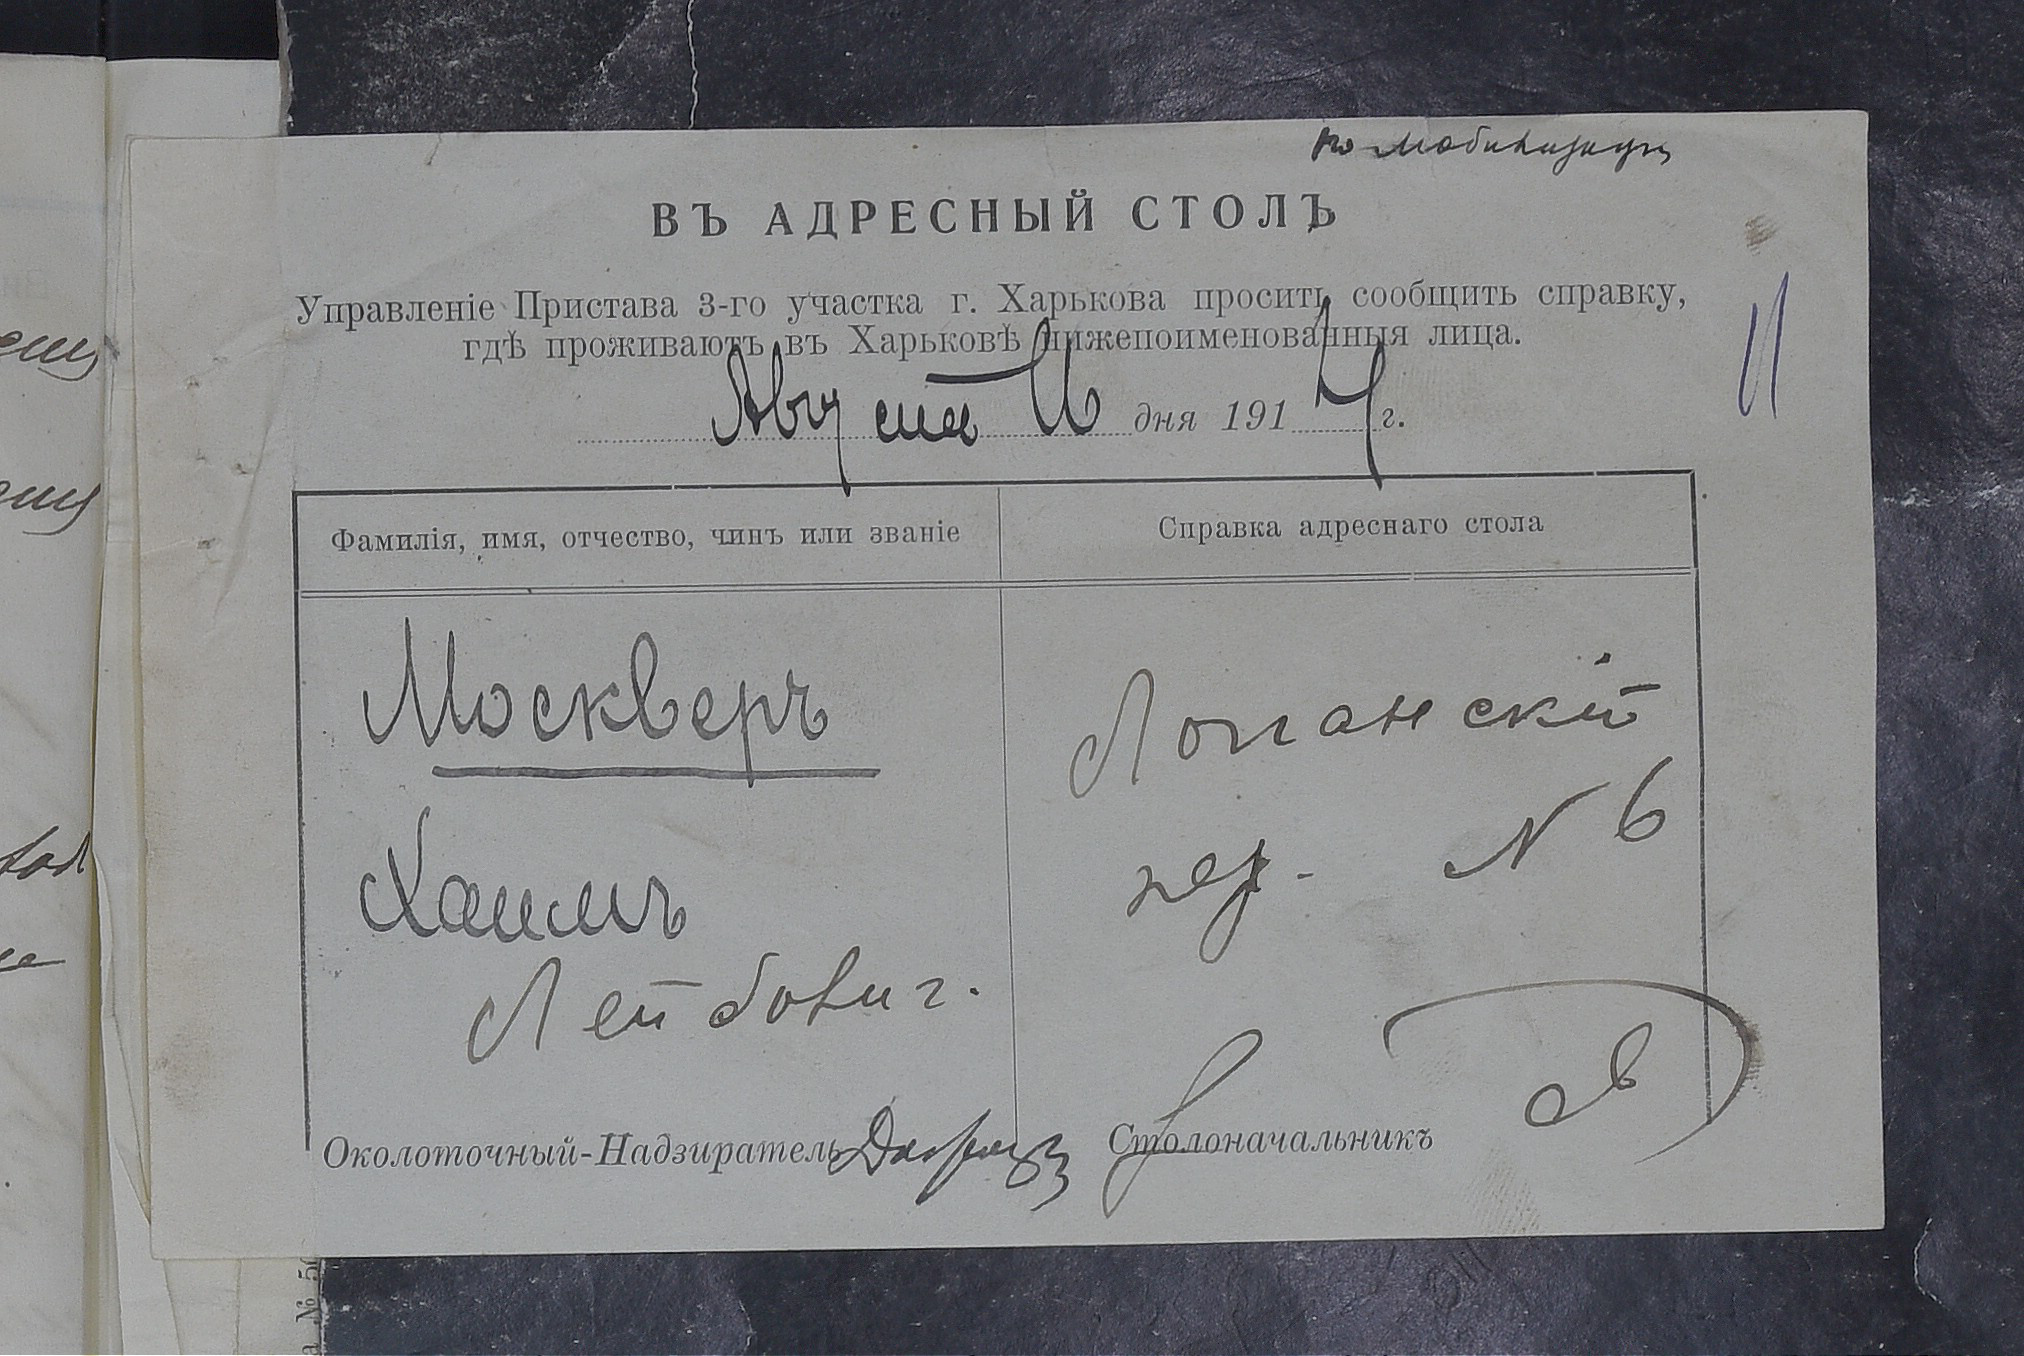 по мобилизаціи
ВЪ АДРЕСНЫЙ СТОЛЪ
Управленіе Пристава 3-го участка г. Харькова проситъ сообщить справку,
гдѣ проживаютъ въ Харьковѣ нижепоименованныя лица.
Августа дня 1914 г.
Фамилія, имя, отчество, чинъ или званіе
Справка адреснаго стола
Москверъ
Хаимъ
Лейбович.
Лопанскій
пер. N 6
Околоточный-Надзиратель
Столоначальникъ